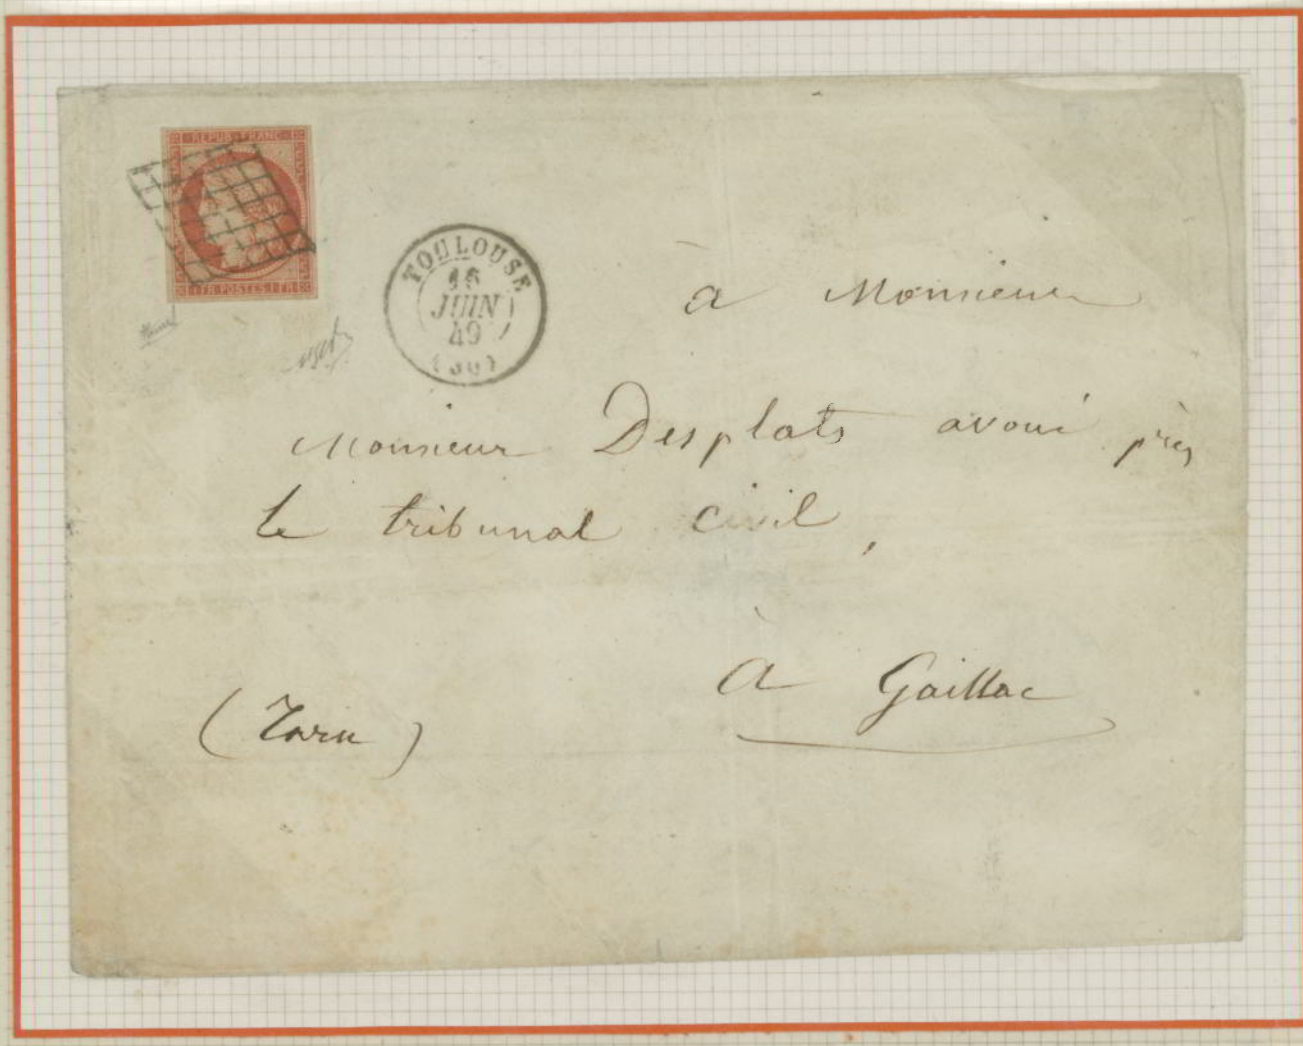 REPUB FRANC
1 FR POSTES 1 FR
TOULOUSE
16
JUIN
49
(30)
à Monsieur
Monsieur Desplats avoué près
le tribunal civil,
à Gaillac
(Tarn)